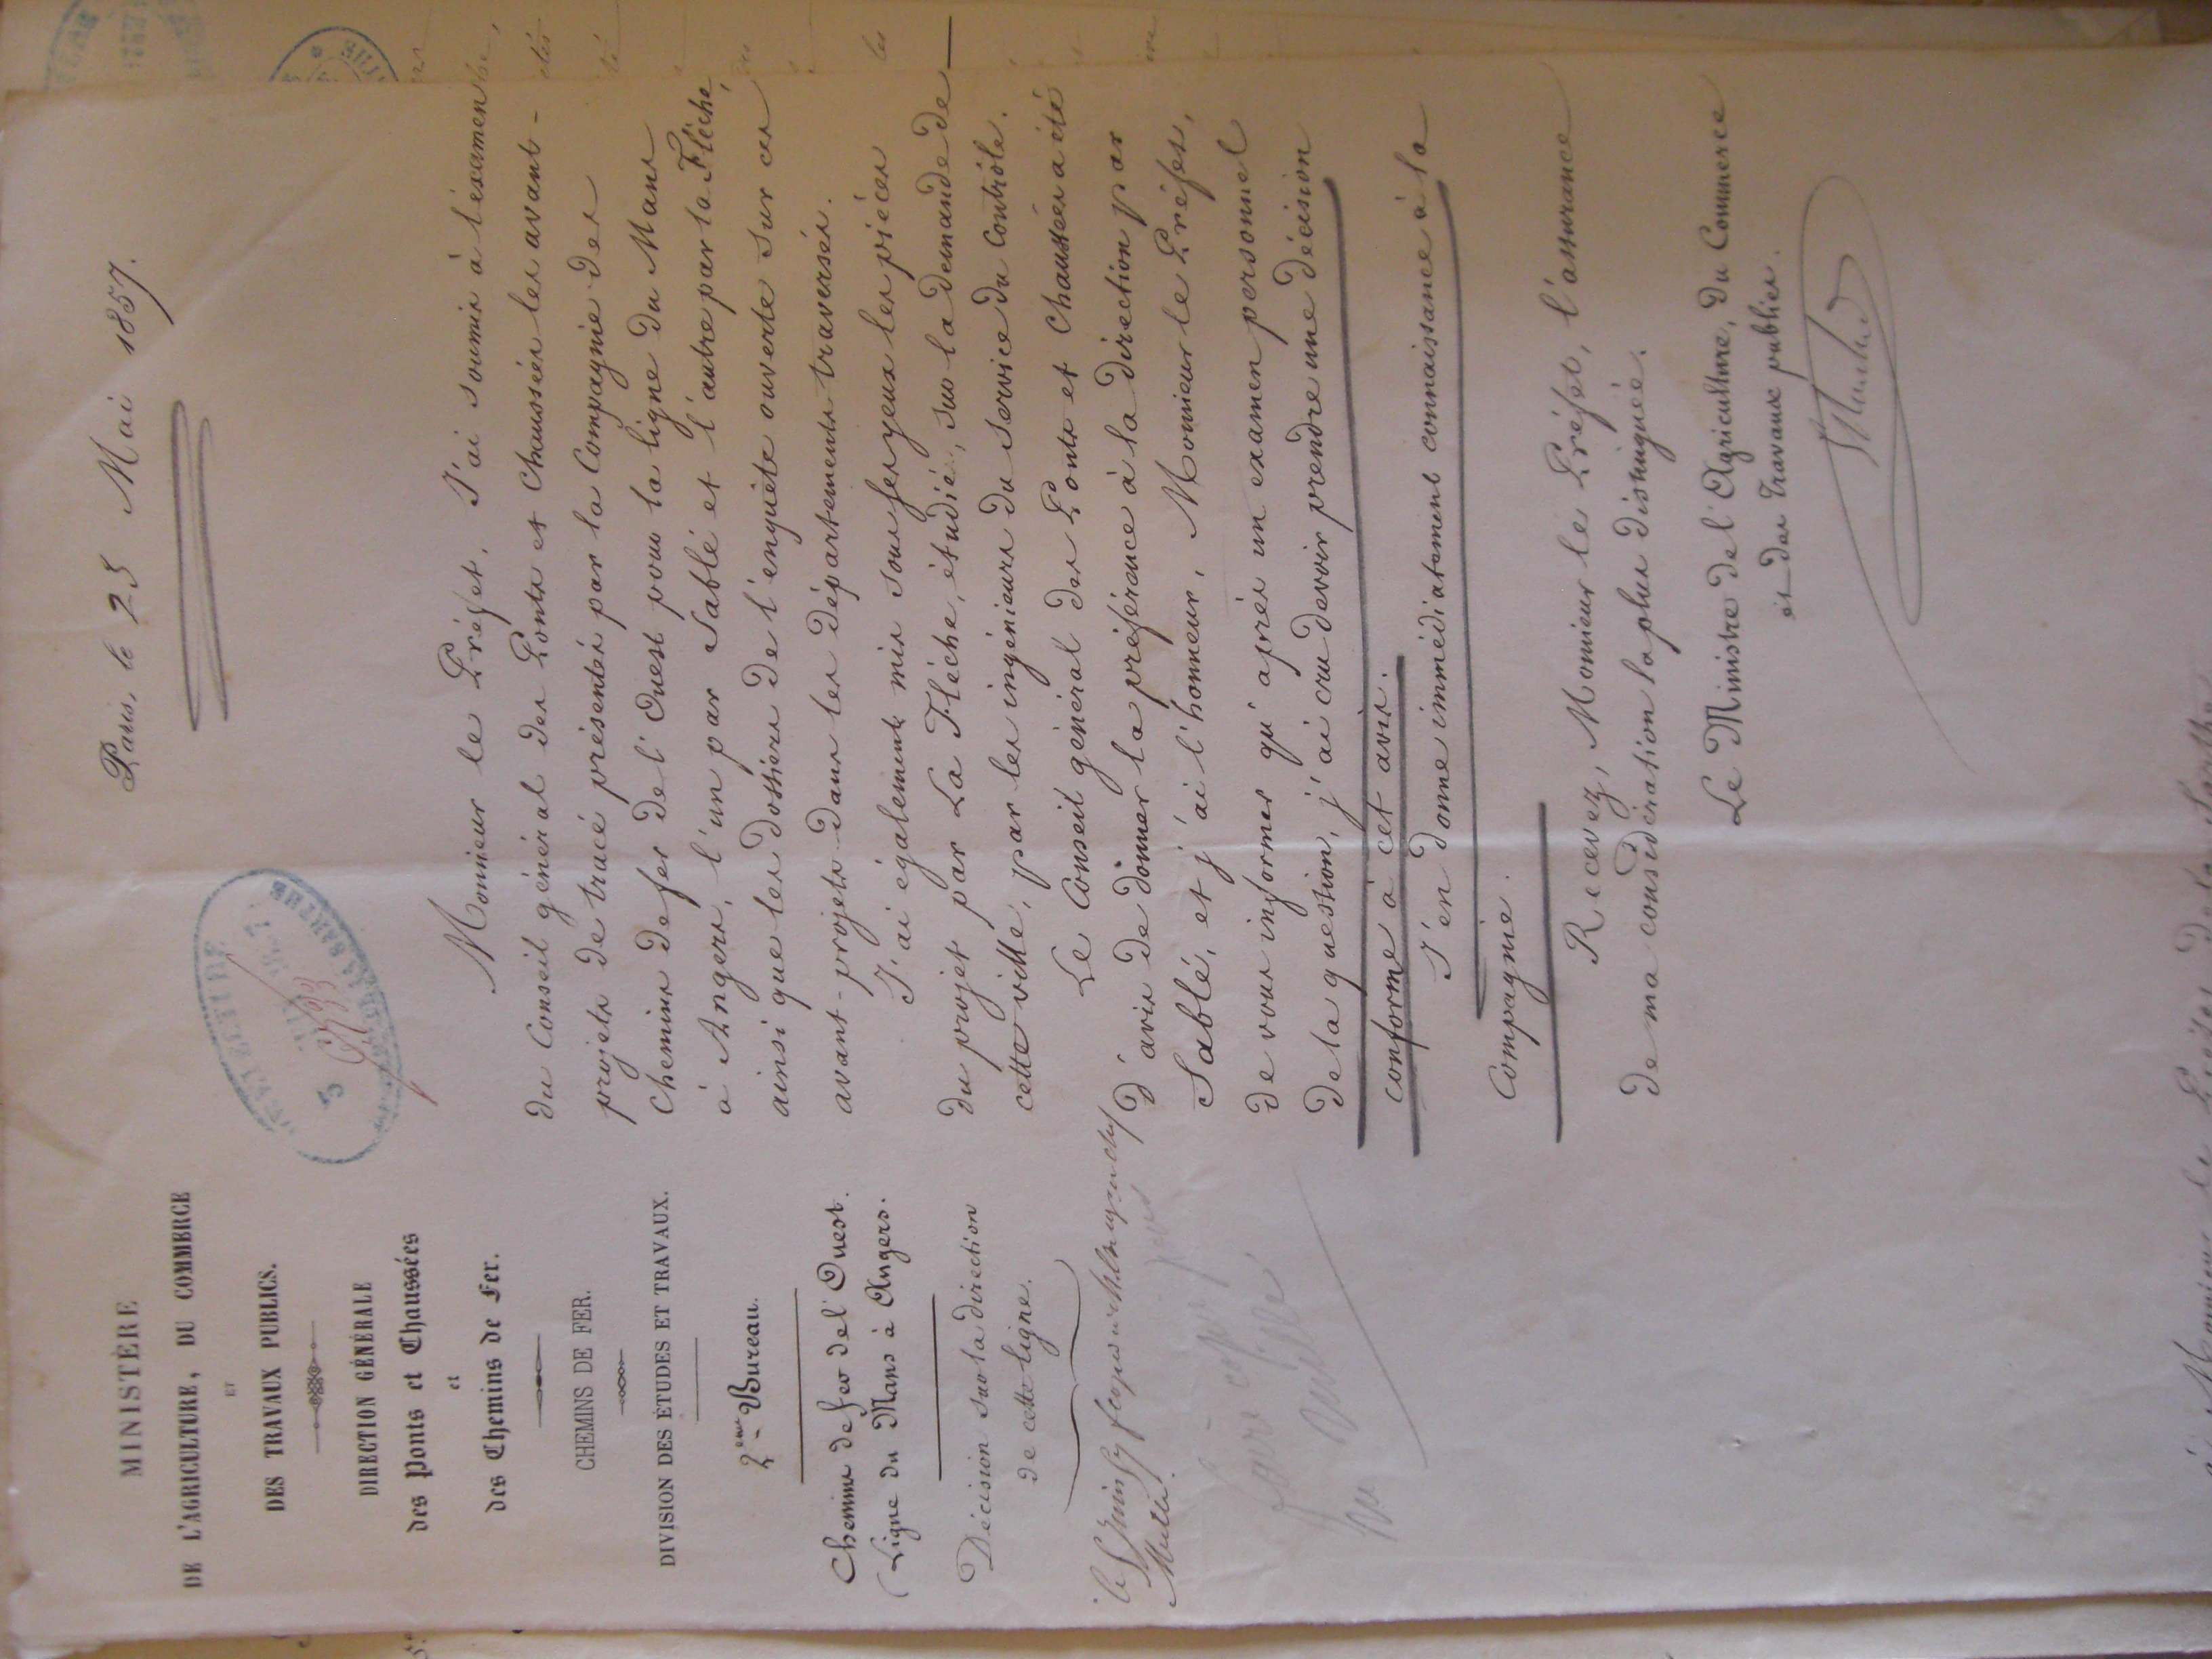 MINISTÈRE
DE L'AGRICULTURE, DU COMMERCE
ET
DES TRAVAUX PUBLICS.
DIRECTION GÉNÉRALE
des Ponts et Chaussées
et
des Chemins de Fer.
CHEMINS DE FER.
DIVISION DES ÉTUDES ET TRAVAUX.
2eme Bureau.
Chemins de fer de l'Ouest.
Ligne du Mans à Angers.
Décision sur la direction
de cette ligne.
le 5 Juin
faire copie
PRÉFECTURE
3 JUIN 1857
SARTHE
Paris, le 25 Mai 1857.
Monsieur le Préfet, J'ai soumis à l'examen
du Conseil général des Ponts et Chaussées les avant-
projets de tracé présentés par la Compagnie des
Chemins de fer de l'Ouest pour la ligne du Mans
à Angers, l'un par Sablé et l'autre par la Flèche,
ainsi que les dossiers de l'enquête ouverte sur ces
avant-projets dans les départements traversés.
J'ai également mis sous ses yeux les pièces
du projet par La Flèche, étudié, sur la demande de
cette ville, par les ingénieurs du service du Contrôle.
Le Conseil général des Ponts et Chaussées a été
d'avis de donner la préférence à la direction par
Sablé, et j'ai l'honneur, Monsieur le Préfet,
de vous informer qu'après un examen personnel
de la question, j'ai cru devoir prendre une décision
conforme à cet avis.
J'en donne immédiatement connaissance à la
Compagnie.
Recevez, Monsieur le Préfet, l'assurance
de ma considération la plus distinguée.
Le Ministre de l'Agriculture, du Commerce
et des Travaux publics.